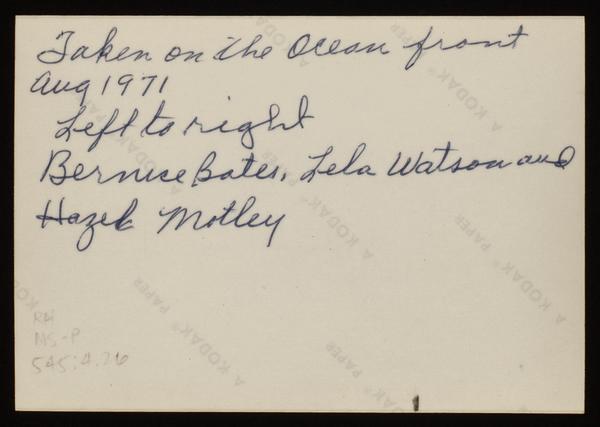 Taken on the Ocean front
Aug 1971
Left to right
Bernice Bates, Lela Watson and
Hazel Motley
RH
MS-P
545:4.26
A KODAK® PAPER
A KODAK® PAPER
A KODAK® PAPER
A KODAK® PAPER
A KODAK® PAPER